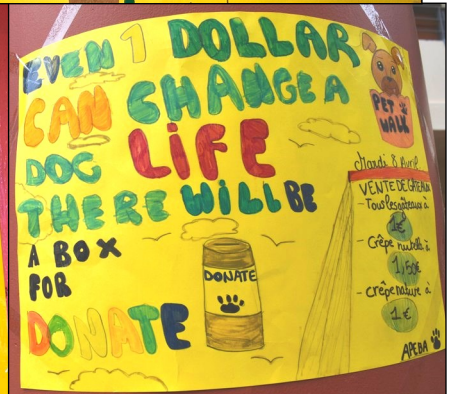 EVEN 1 DOLLAR
CAN CHANGE A
DOG LIFE
THERE WILL BE
A BOX
FOR
DONATE
DONATE
PET
WALK
Mardi 8 Avril
VENTE DE GÂTEAU
- Tous les gâteaux à
1€
- Crêpe nutella à
1,50€
- crêpe nature à
1€
APEBA